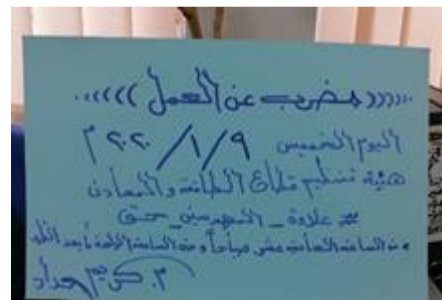 .....((((( مضرب عن العمل ))))).....
اليوم الخميس ٩ / ١ / ٢٠٢٠ م
هيئة تنظيم قطاع الطاقة والمعادن
# علاوة _ المهندسين _ حق
من الساعة الحادية عشر صباحاً وحتى الساعة الواحدة بعد الظهر
م. كريم حداد